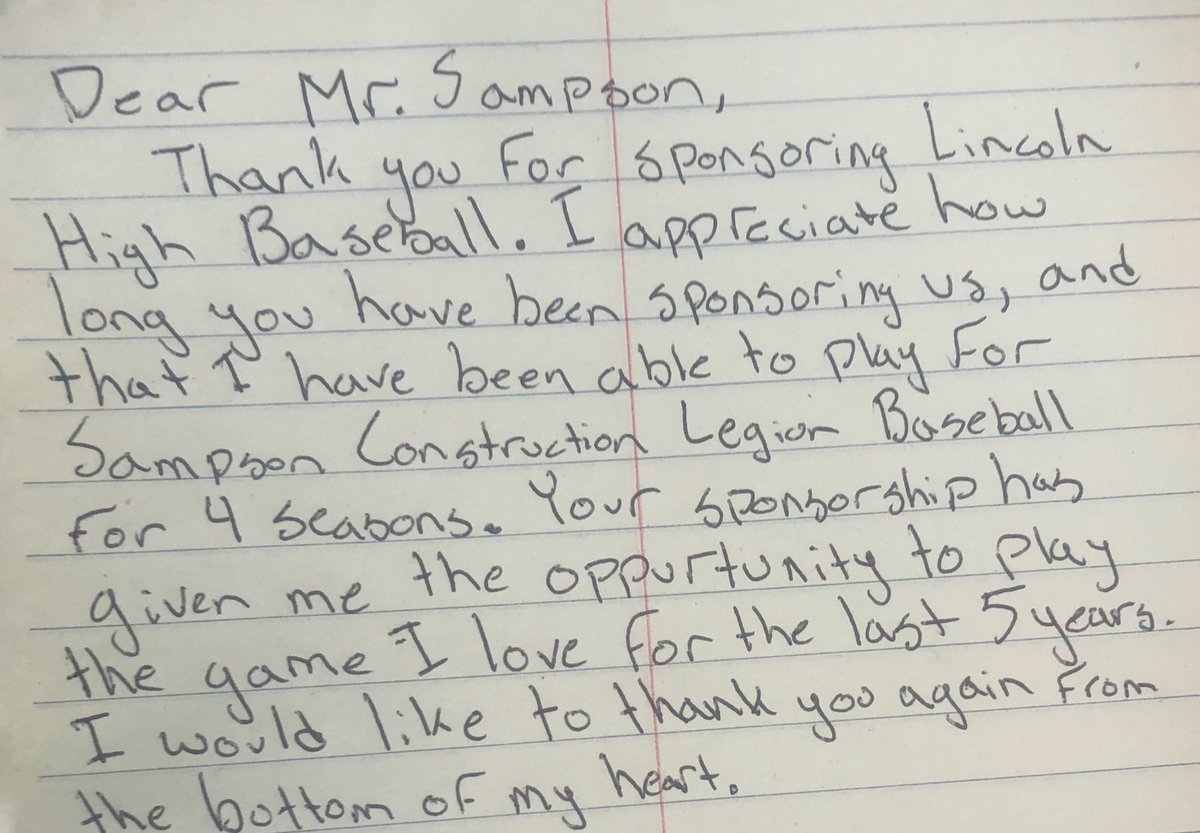 Dear Mr. Sampson,
Thank you For sponsoring Lincoln
High Baseball. I appreciate how
long you have been sponsoring us, and
that I have been able to play For
Sampson Construction Legion Baseball
For 4 seasons. Your sponsorship has
given me the oppurtunity to play
the game I love for the last 5 years.
I would like to thank you again From
the bottom of my heart.